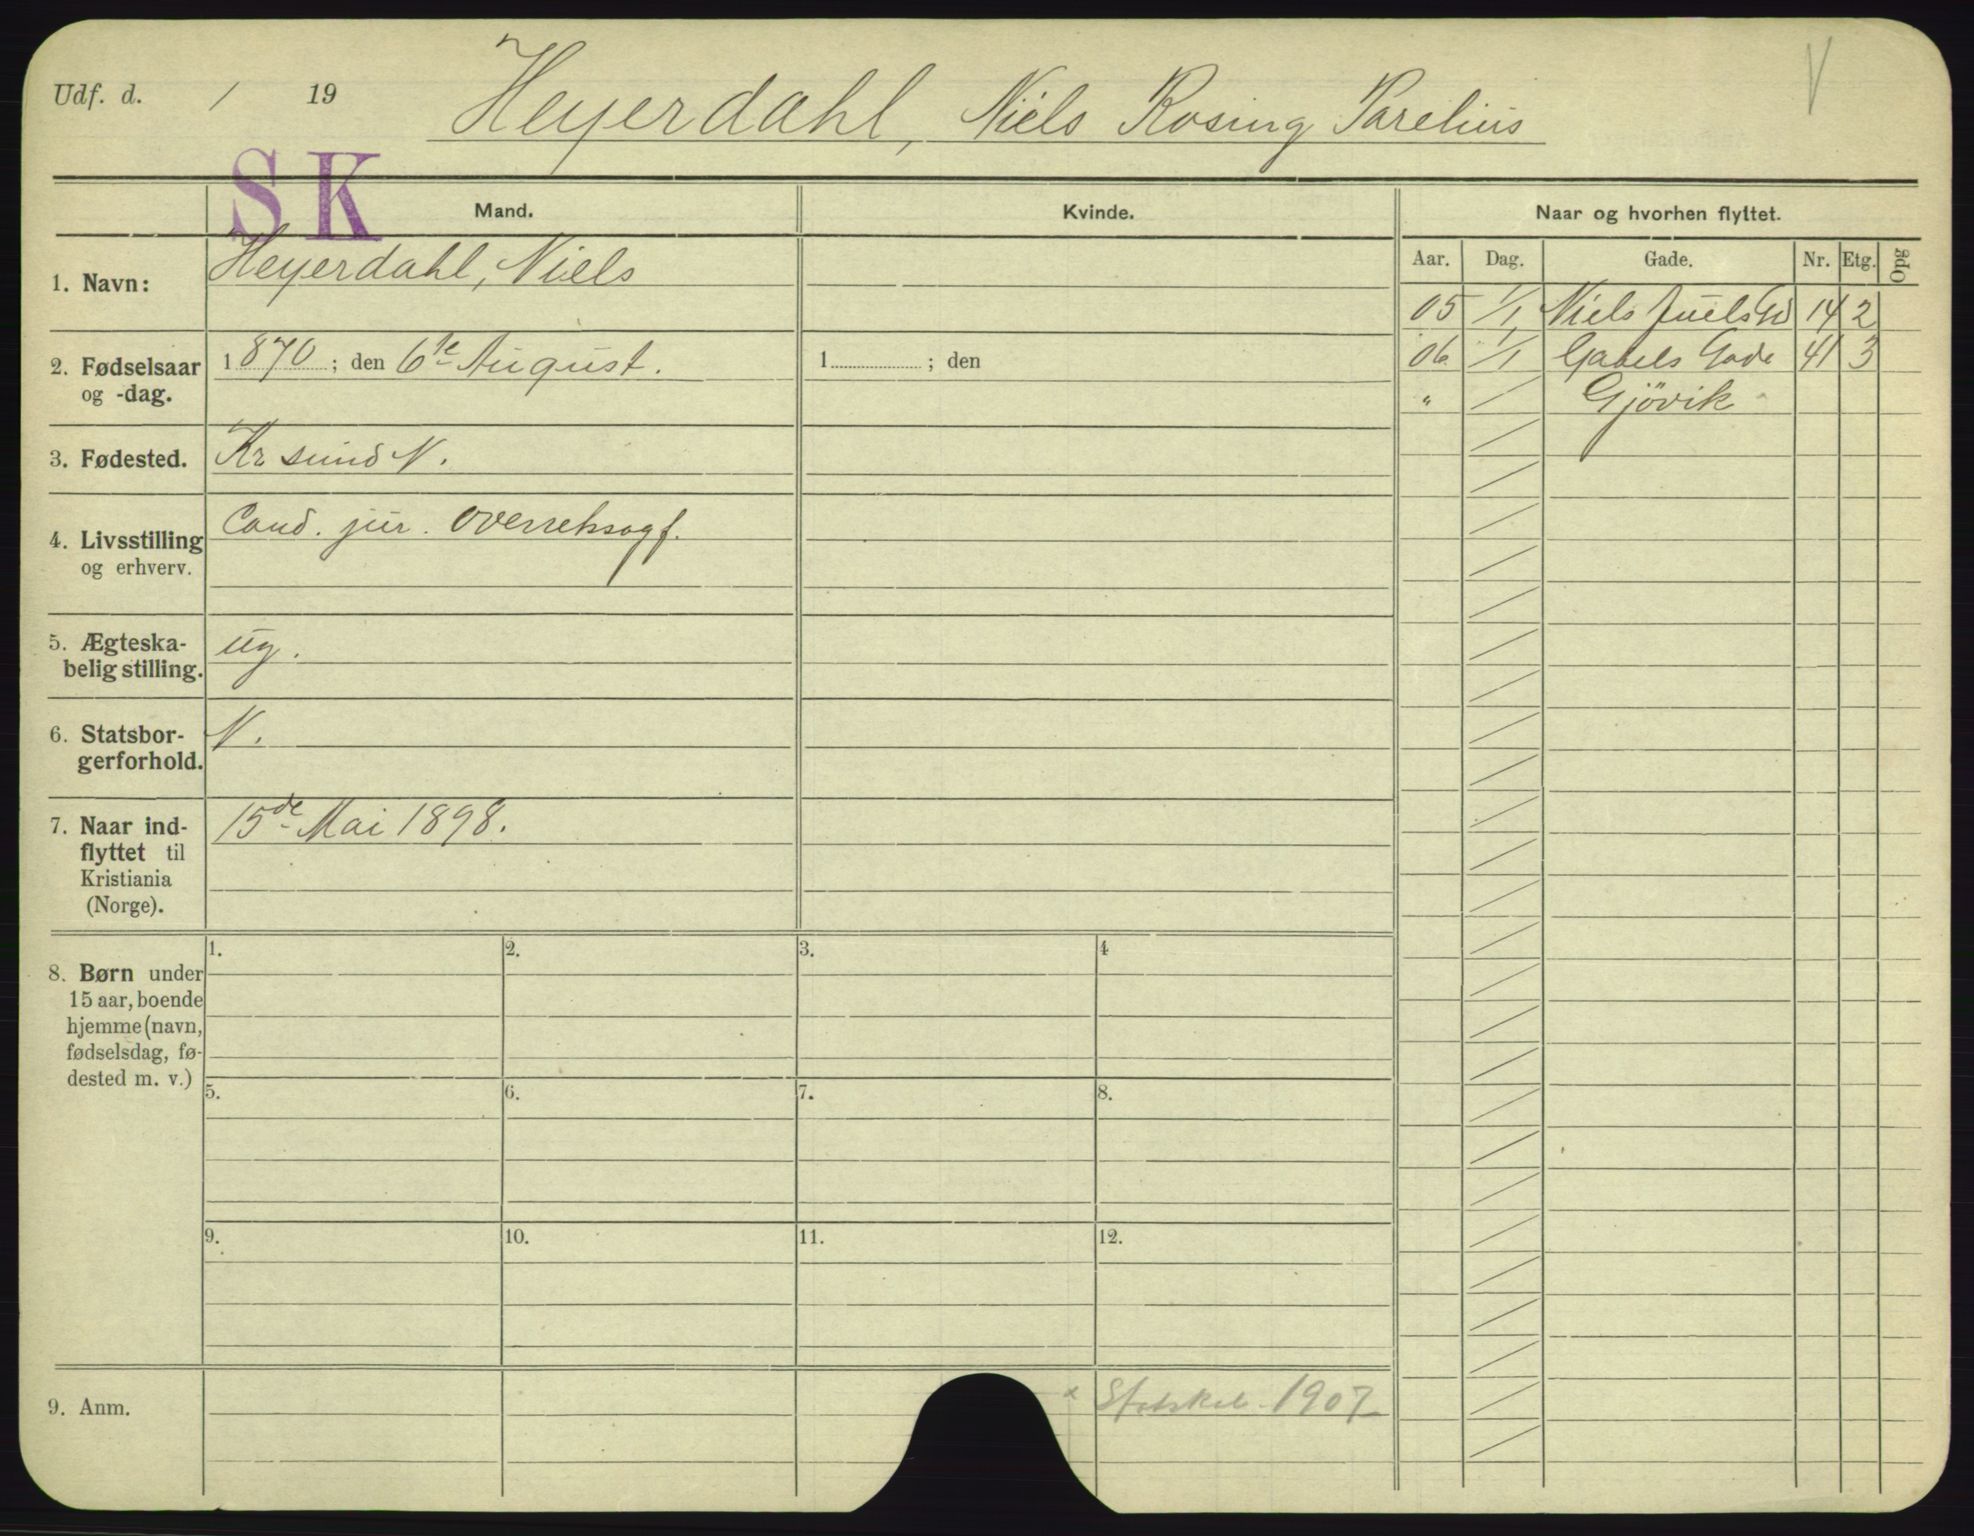 Udf. d. / 19
Heyerdahl, Niels Rosing Parelius
V
SK
Mand.
Kvinde.
Naar og hvorhen flyttet.
Aar. Dag. Gade. Nr. Etg. Opg
1. Navn: Heyerdahl, Niels
05 1/1 Niels Juels Gd 14 2
06 1/1 Gabels Gade 41 3
" / Gjövik
2. Fødselsaar og -dag. 1870; den 6te August.
1 ; den
3. Fødested. Kr sund N.
4. Livsstilling og erhverv. Cand. jur. Overretssagf.
5. Ægteska-
belig stilling. ug.
6. Statsbor-
gerforhold. N.
7. Naar ind-
flyttet til
Kristiania
(Norge).
15de Mai 1898.
8. Børn under
15 aar, boende
hjemme (navn,
fødselsdag, fø-
dested m. v.)
1. 2. 3. 4
5. 6. 7. 8.
9. 10. 11. 12.
9. Anm.
1907